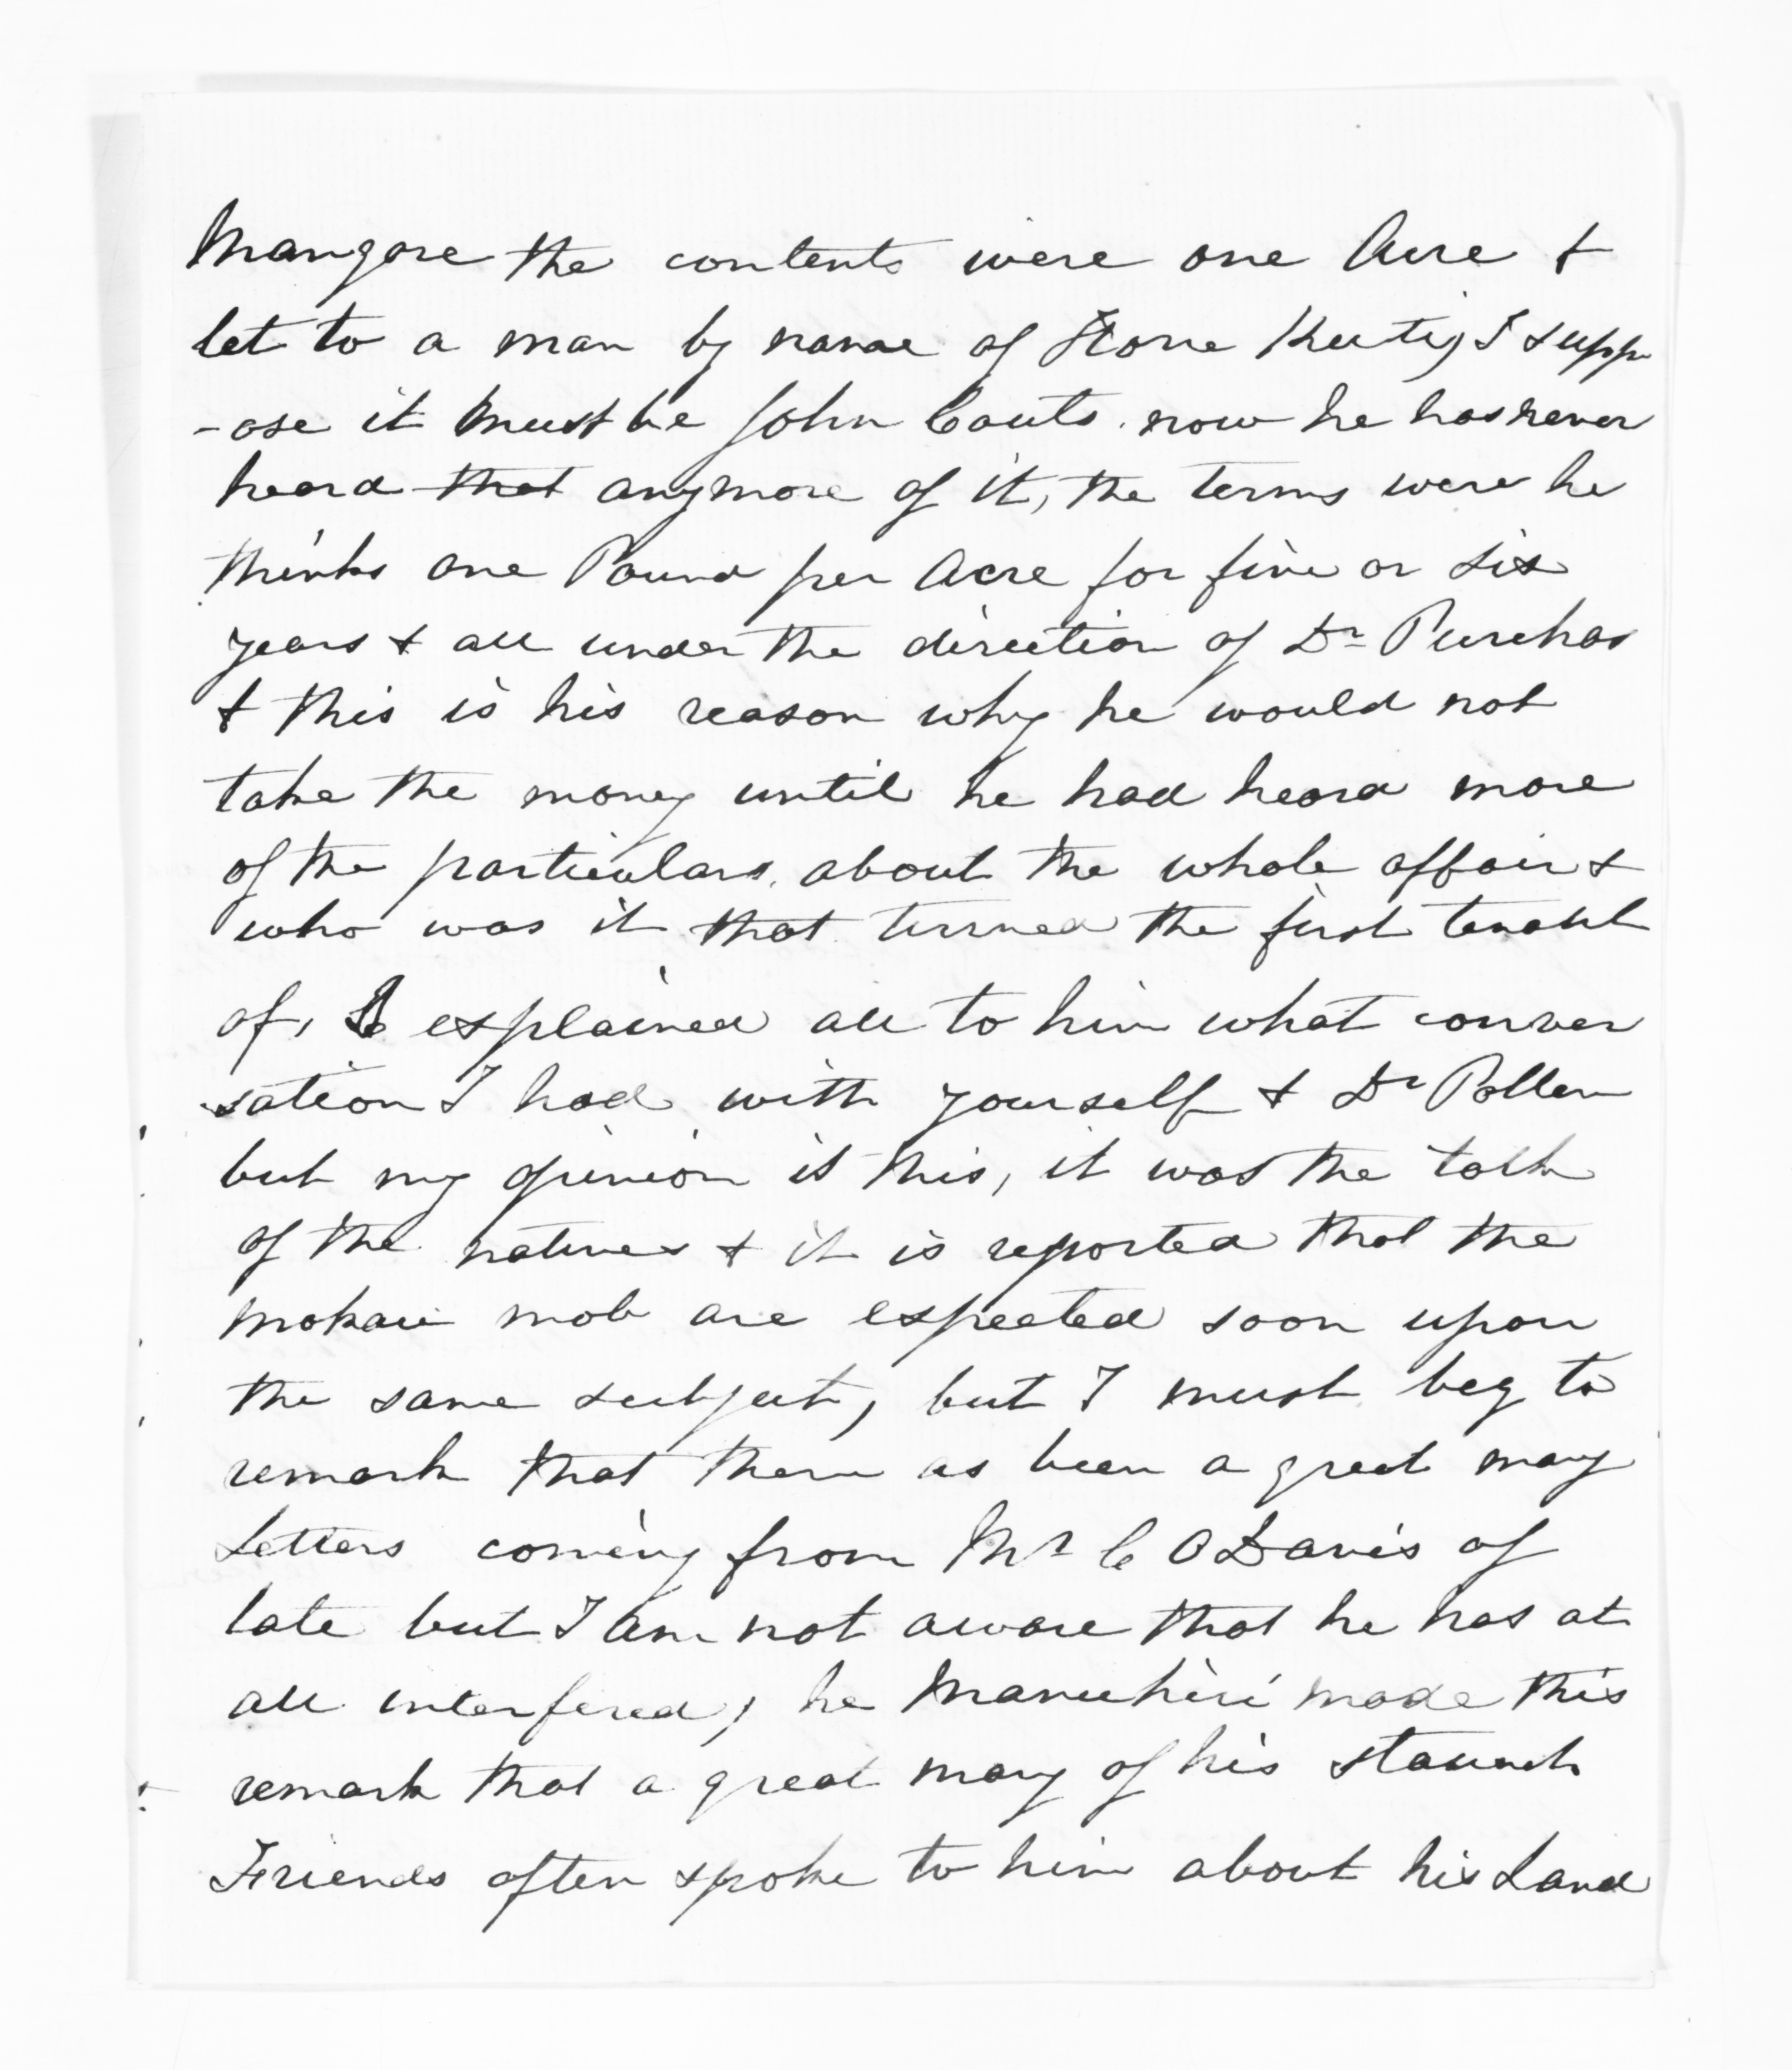 Mangare the contents were one Acre &
let to a man by name of Hone Kuti, I supp
-ose it must be John Couts. now he has never
heard that anymore of it, the terms were he
thinks one Pound per Acre for five or six
years & all under the direction of Dr Purchas
& this is his reason why he would not
take the money until he had heard more
of the particulars, about the whole affair &
who was it that turned the first tenant
of, I explained all to him what conver
sation I had with yourself & Dr Pollen
but my opinion is this, it was the talk
of the natives & it is reported that the
Mokau mob are expected soon upon
the same subject, but I must beg to
remark that there as been a great many
Letters coming from Mr C O Davis of
late but I am not aware that he has at
all interfered, he Manuhiri made this
remark that a great many of his staunch
Friends often spoke to him about his Land